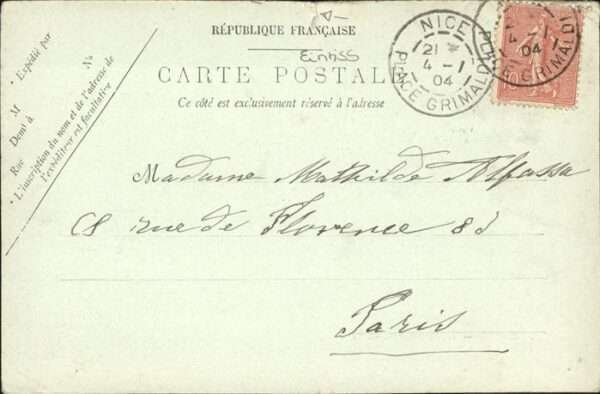 RÉPUBLIQUE FRANÇAISE
Eintiss
CARTE POSTALE
Ce côté est exclusivement réservé à l'adresse
Expédié par
No
M
Demt à
Rue
L'inscription du nom et de l'adresse de
l'expéditeur est facultative
NICE
21
4 - 1
04
PLACE GRIMALDI
04
PLACE GRIMALDI
10
Madame Mathilde Alfassa
18 rue de Florence 83
Paris